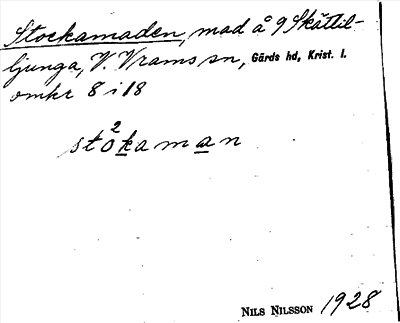 Stockamaden, mad å 9 Skättil-
ljunga, V. Vrams sn, Gärds hd, Krist. l.
omkr 8 i 18
2
stokaman
NILS NILSSON 1928